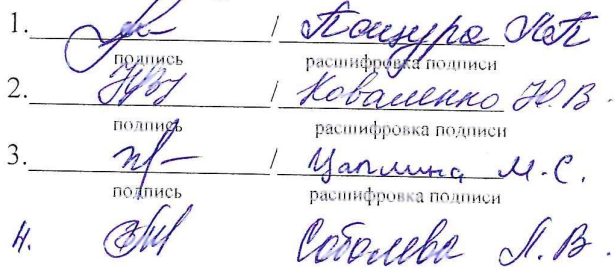 1. / Пацура Н.П
подпись расшифровка подписи
2. / Коваленко Ю.В.
подпись расшифровка подписи
3. / Цаплина М.С.
подпись расшифровка подписи
4. Соболева Л.В.